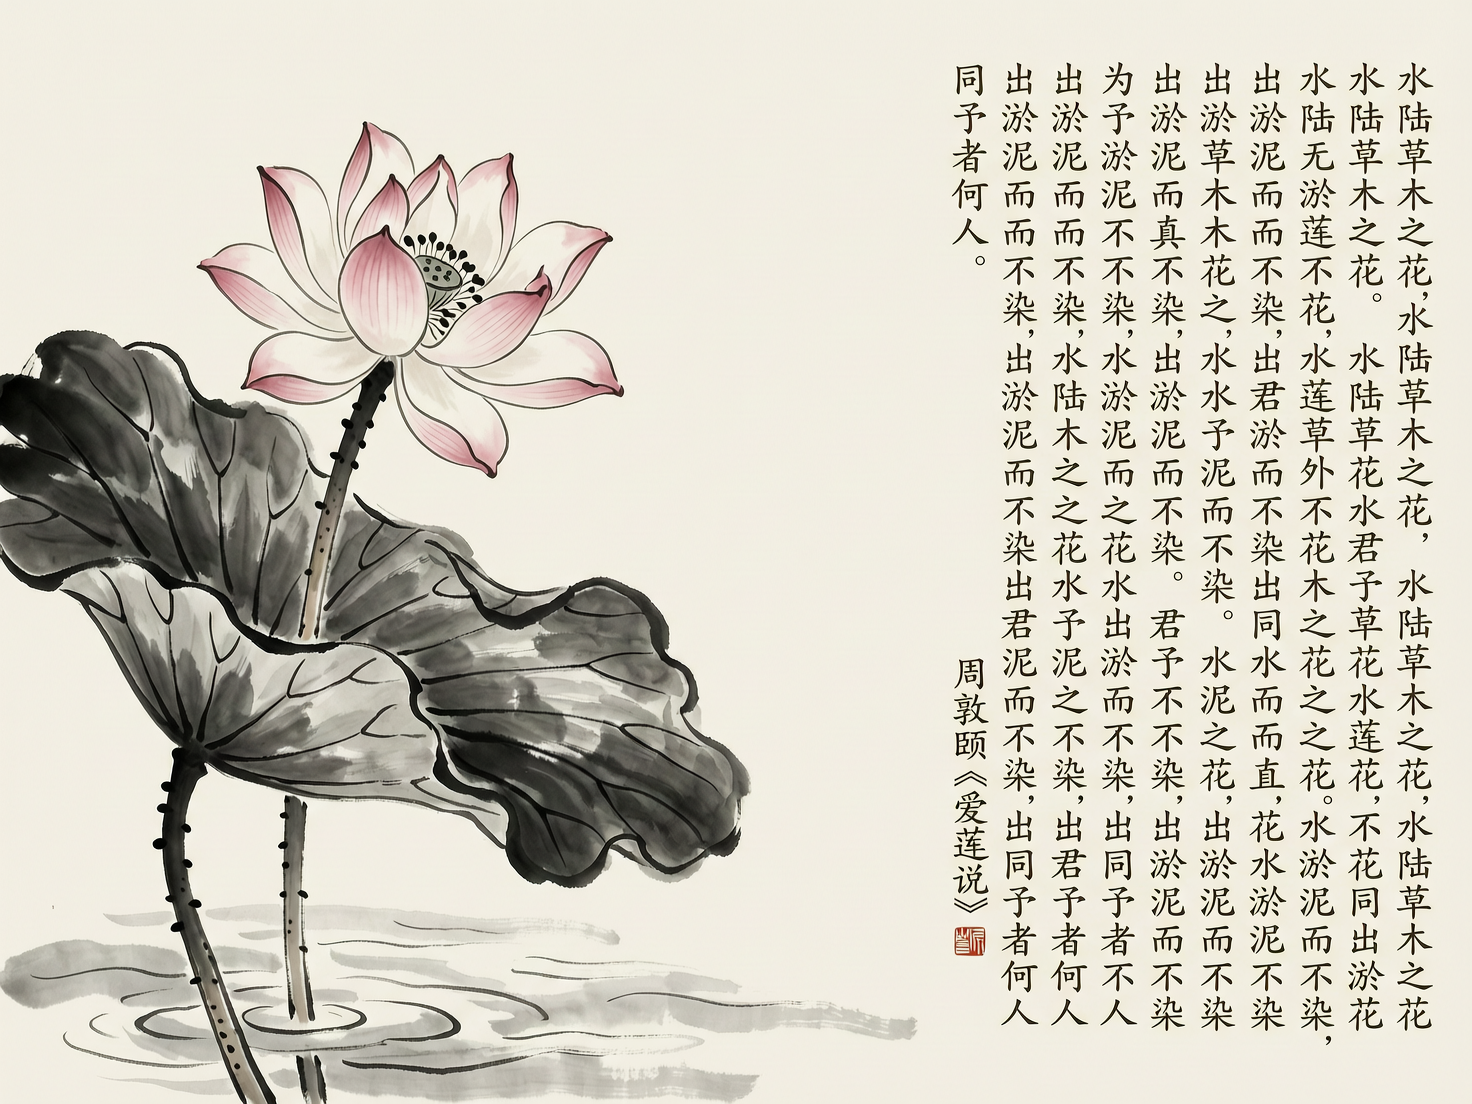 水陆草木之花，水陆草木之花，水陆草木之花，水陆草木之花
水陆草木之花。水陆草花水君子草花水莲花，不花同出淤花
水陆无淤莲不花，水莲草外不花木之花之之花。水淤泥而不染，
出淤泥而而不染，出君淤而不染出同水而而直，花水淤泥不染
出淤草木木花之，水水予泥而不染。水泥之花，出淤泥而不染
出淤泥而真不染，出淤泥而不染。君予不不染，出淤泥而不染
为予淤泥不不染，水淤泥而之花水出淤而不染，出同予者不人
出淤泥而而不染，水陆木之之花水予泥之不染，出君予者何人
出淤泥而而不染，出淤泥而不染出君泥而不染，出同予者何人
同予者何人。
周敦颐《爱莲说》